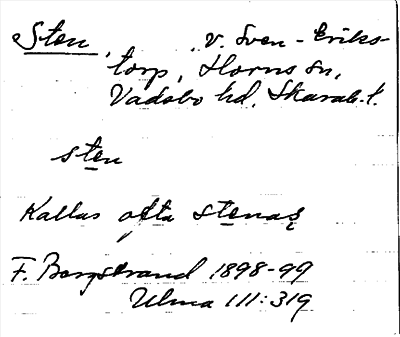 Sten, v. Sven-Eriks-
torp, Horns sn,
Vadsbo hd, Skarab. l.
sten
Kallas ofta stenas
F. Bergstrand 1898-99
Ulma 111:319